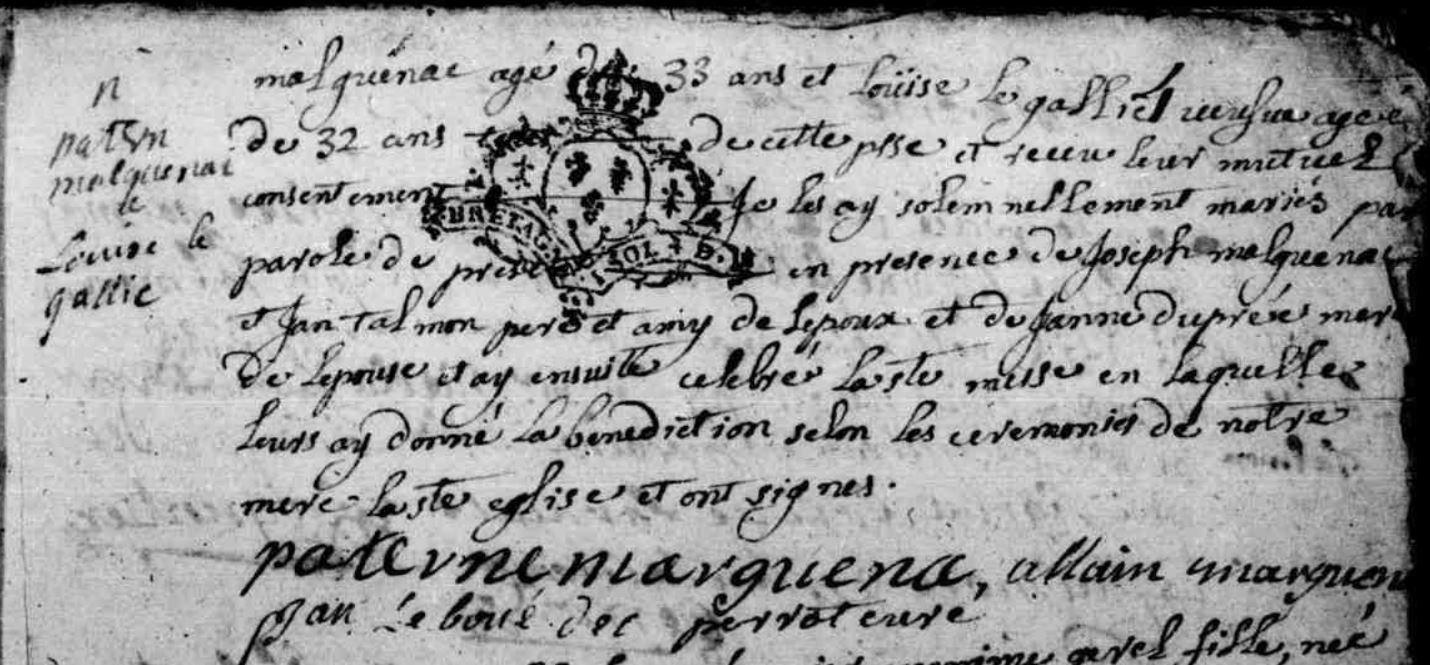 n
patern
malquenac
et
Louise le
gallic
malquénac agé de 33 ans et Loüise Le gallic veufve agee
de 32 ans de cette psse et receu leur mutuel
consentement Je les ay solemnellement mariés par
parole de en presence de Joseph malquénac
et Jan talmon pere et amy de Lepoux et de Janne duprée mere
de Lepouse et ay ensuitte celebré la ste messe en laquelle
leurs ay donné la benediction selon les ceremonies de notre
mere la ste eglise et ont signes.
paterne marguena, allain marguen
Jan Le boulé perrot curé
fille, née
BRETAG SOL D.